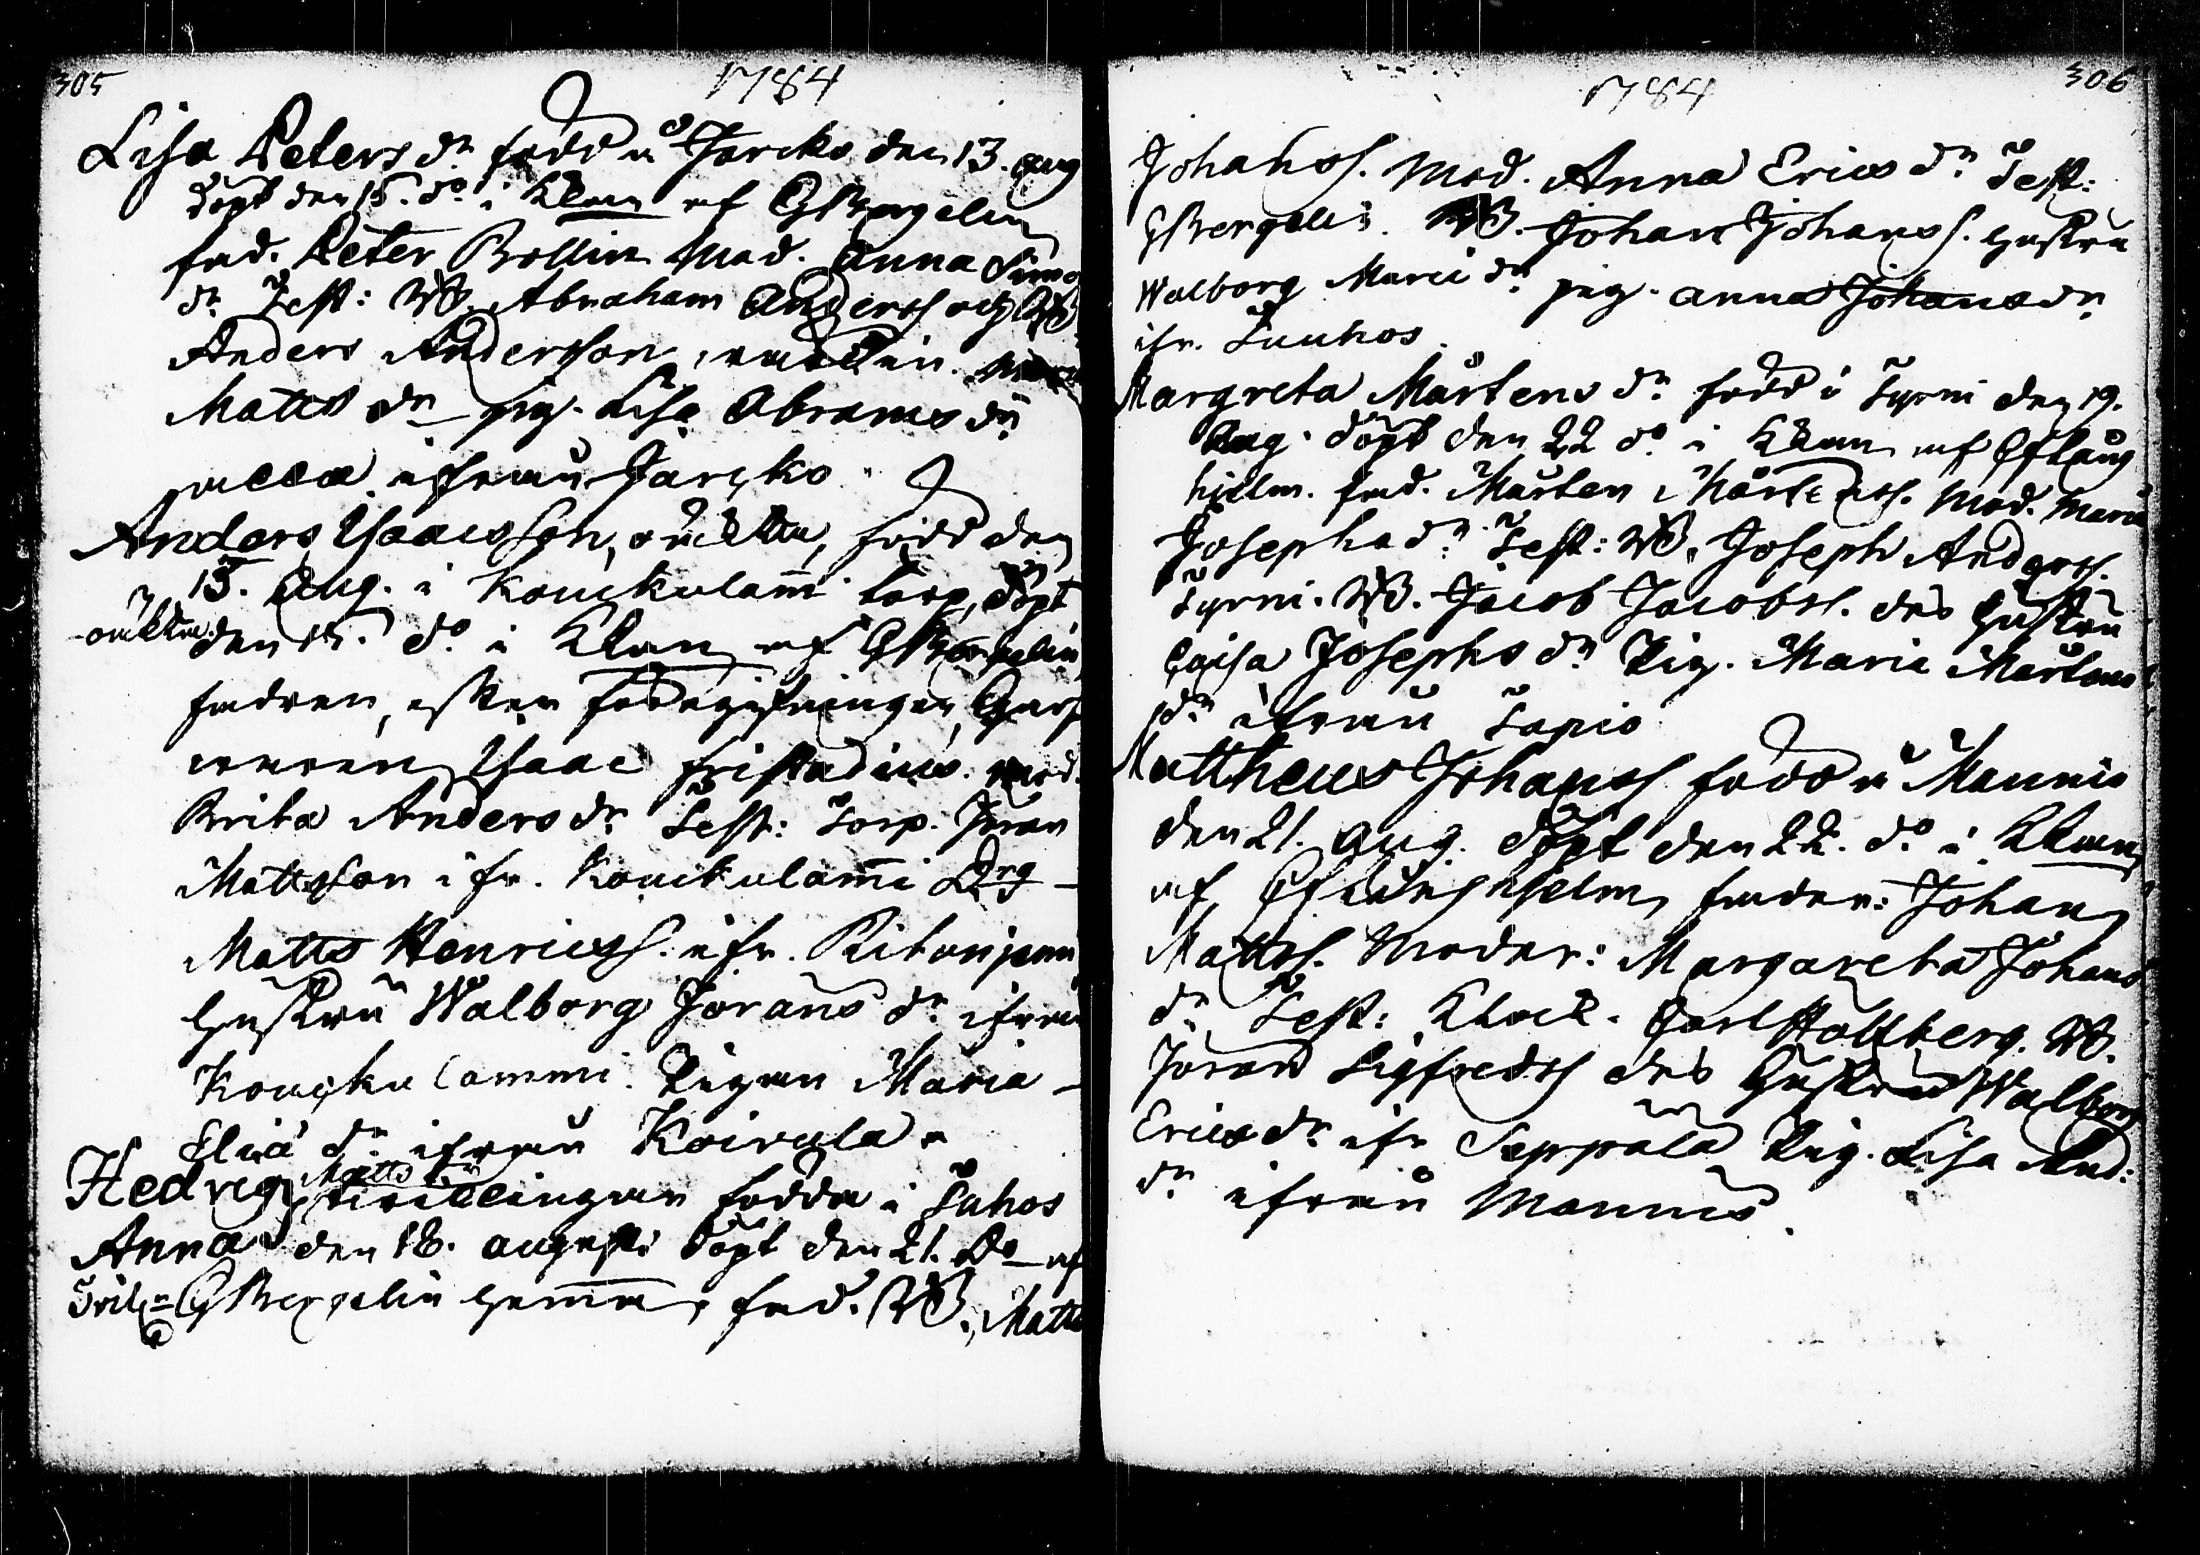 305
1784
Lisa Peters dr född å Jarcko den 13. aug
döpt den 15. do i Kkan af GBergelin
fad. Peter Bollin Mod. Anna Simo
dr Test: Bd. Abraham Anderss och Bd
Anders Andersson,
Matts dr pig. Lisa Abrams dr
ifrån Jarcko
Anders Isaacsson, oäkta, född den
15. Aug. i Kouckulammi torp, döpt
oäkta. den 15. do i Kkan af GBergelin
fadren, efter
Isaac Fristadius. mod.
Brita Anders dr Test: Torp. Jöran
Mattsson ifr. Kouckulammi Drg
Matts Henricss. ifr.
hustru Walborg Jörans dr ifrån
Kouckulammi. Pigan Maria
Eliæ dr ifrån Koivula
Hedvig Matts dr tvillingar födda i Suhos
Anna den 18. augusti döpt den 21. do af
Tvil. GBergelin hemma, fad. Bd. Matts
306
1784
Johanss. Mod. Anna Erics dr Test:
GBergelin. Bd. Johan Johanss. hustru
Walborg Marci dr pig. Anna Johans dr
ifr. Suuhos.
Margreta Mårtens dr född i Syrni den 19.
Aug. döpt den 22 do i Kkan af
hjelm. fad. Mårten Mårtenss. Mod. Maria
Josephs dr Test: Bd. Joseph Anderss.
Syrni. Bd. Jacob Jacobss. des hustru
Caisa Josephs dr Pig. Maria Mårtens
dr ifrån Sapio
Mattheus Johanss född å Mannis
den 21. Aug. döpt den 22. do i Kkan
af fader: Johan
Mattss. Moder: Margareta Johans
dr Test: Klock. Carl Hollberg. Bd.
Jöran Sigfredss des hustru Walborg
Erics dr ifr Seppälä Pig. Lisa And:
dr ifrån Mannis.